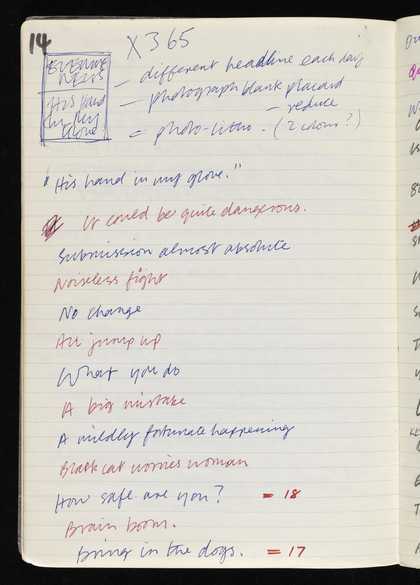 14
X 365
EVENING
NEWS
His hand
in my
glove
— different headline each day
— photograph blank placard
— reduce
= photo-litho. (2 colour?)
"His hand in my glove."
It could be quite dangerous.
Submission almost absolute
Noiseless fight
No change
All jump up
What you do
A big mistake
A mildly fortunate happening
Black cat worries woman
How safe are you? = 18
Brain boom.
Bring in the dogs. = 17